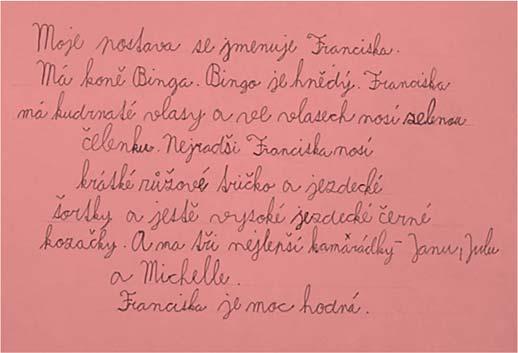 Moje postava se jmenuje Franciska.
Má koně Binga. Bingo je hnědý. Franciska
má kudrnaté vlasy a ve vlasech nosí zelenou
čelenku. Nejradši Franciska nosí
krátké růžové tričko a jezdecké
šortky a jestě vysoké jezdecké černé
kozačky. A ma tři nejlepší kamarádky - Janu, Julu
a Michelle.
Franciska je moc hodná.